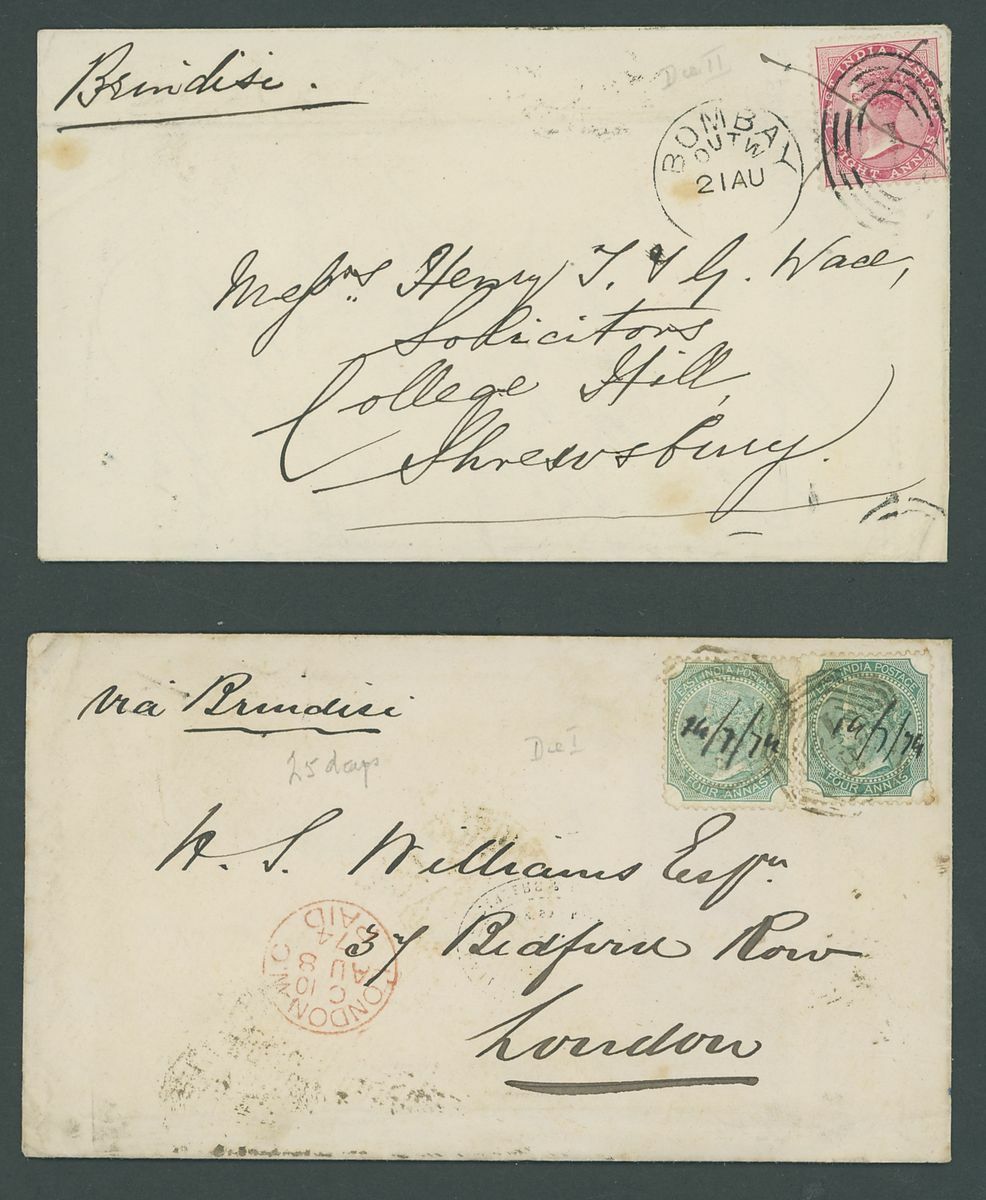 Brindisi.
Die II
EAST INDIA POSTAGE
EIGHT ANNAS
BOMBAY
OUTW
21 AU
Messrs. Henry T. & G. Wace,
Solicitors
College Hill,
Shrewsbury.
via Brindisi
25 days
Die I
EAST INDIA POSTAGE
FOUR ANNAS
EAST INDIA POSTAGE
FOUR ANNAS
14/7/74
H. S. Williams Esqr.
37 Bedford Row
London
LONDON W.C
10
C
AU 8
74
PAID